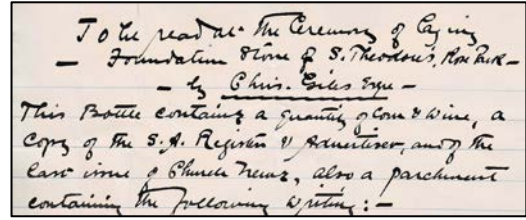 To be read at the Ceremony of Laying
— Foundation Stone of S. Theodore's, Rose Park —
— by Chris. Giles Esqre —
This Bottle contains a quantity of Corn & Wine, a
Copy of the S.A. Register & Advertiser, and of the
last issue of Church News, also a parchment
containing the following writing: —